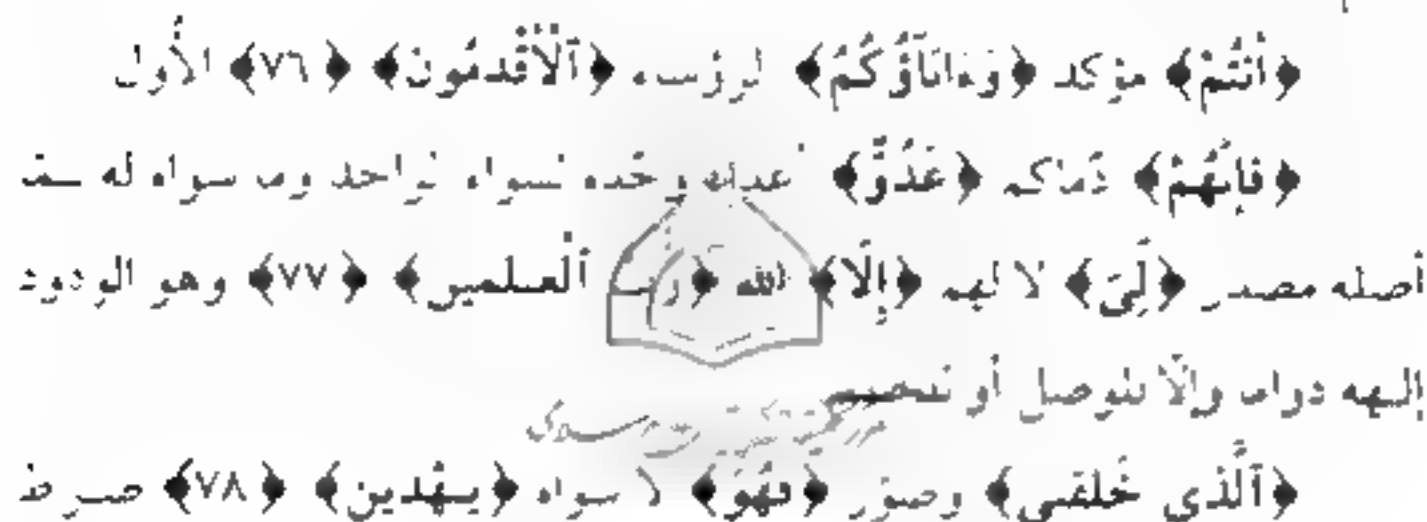 ﴿أَنتُمْ﴾ مؤكد ﴿وَءَابَآؤُكُمُ﴾ الرؤساء ﴿ٱلْأَقْدَمُونَ﴾ ﴿٧٦﴾ الأول
﴿فَإِنَّهُمْ﴾ دماكم ﴿عَدُوٌّ﴾ وحّده لسواء الواحد وما سواه له
أصله مصدر ﴿لِّىٓ﴾ لا لهم ﴿إِلَّا﴾ الله ﴿رَبَّ ٱلْعَـٰلَمِينَ﴾ ﴿٧٧﴾ وهو الودود
إلـهه دواما وإلّا للوصل أو
﴿ٱلَّذِى خَلَقَنِى﴾ وصوّر ﴿فَهُوَ﴾ لا سواه ﴿يَهْدِينِ﴾ ﴿٧٨﴾ صراط